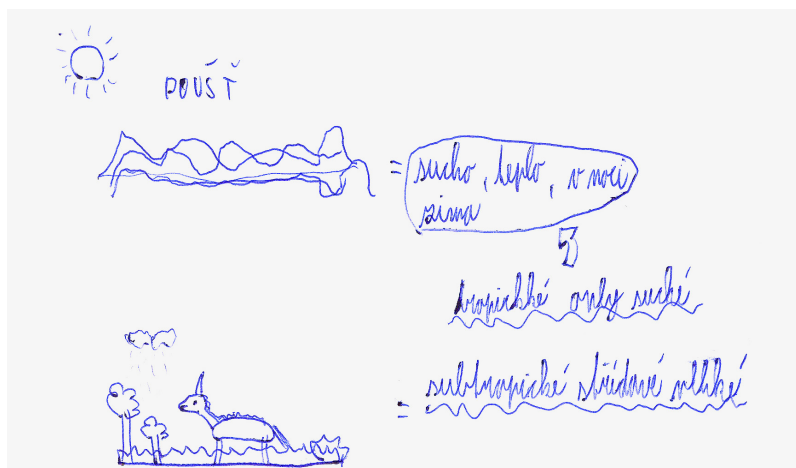 POUŠŤ
= sucho, teplo, v noci
zima
tropické only suché
= subtropické střídavě vlhké